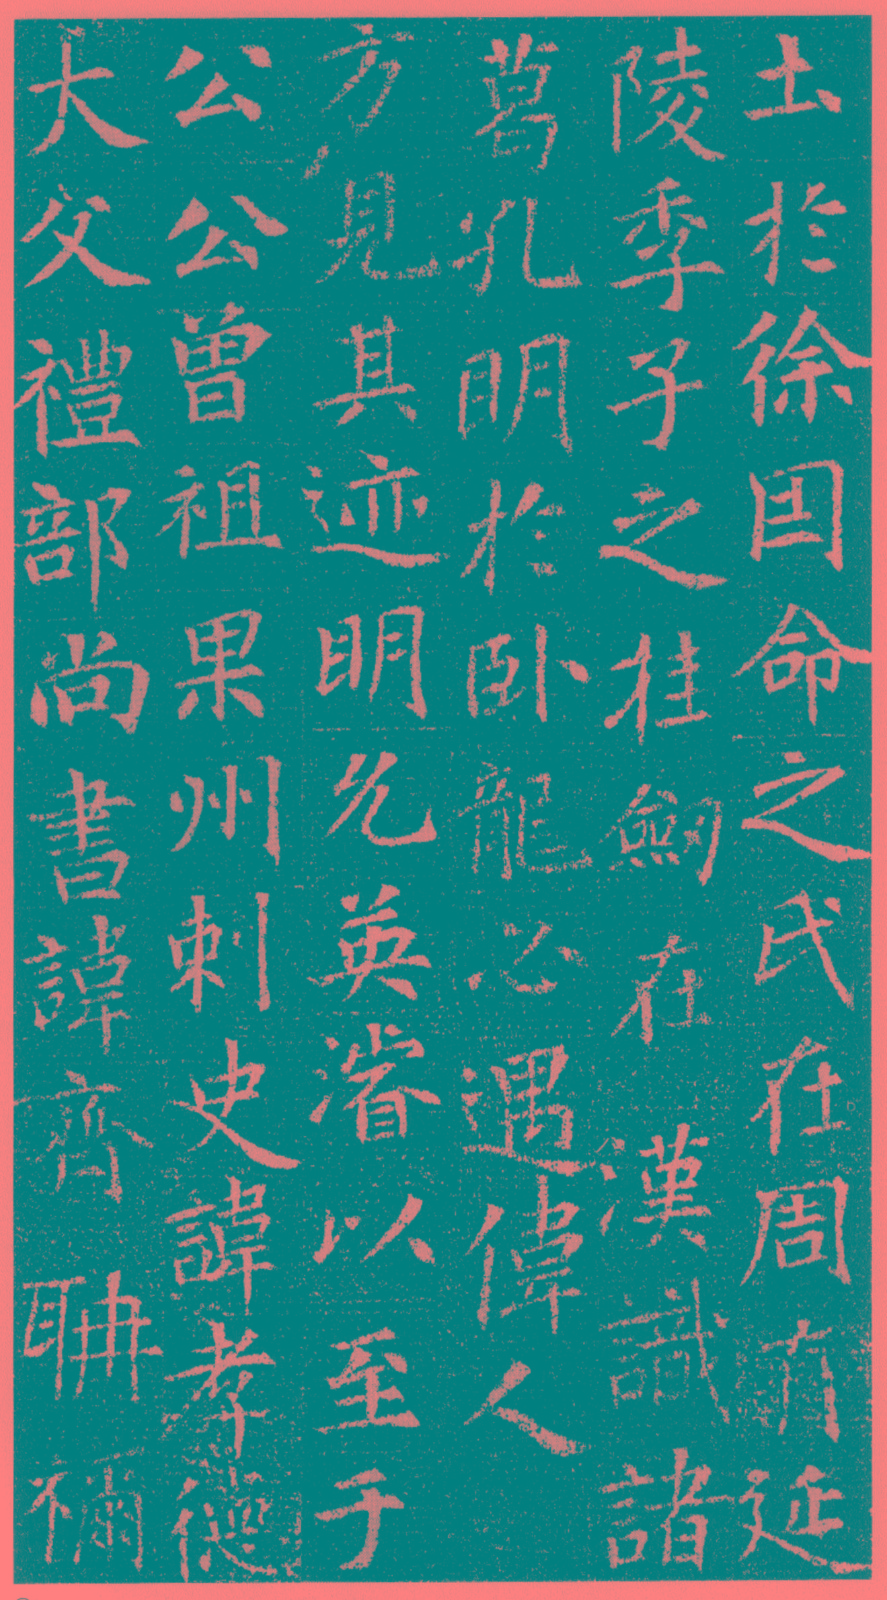 土於徐囯命之氏在周有延
陵季子之挂劒在漢識諸
葛孔明於卧龍必遇偉人
方見其迹明允英濬以至于
公公曾祖果州刺史諱孝德
大父禮部尚書諱齊聃禰